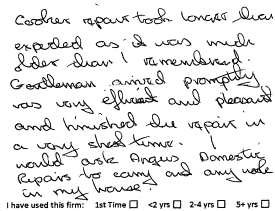 Cooker repair took longer than
expected as it was much
older than I remembered.
Gentleman arrived promptly
was very efficient and pleasant
and finished the repair in
a very short time. I
would ask Angus Domestic
Repairs to carry out any work
in my house.
I have used this firm: 1st Time ☐ <2 yrs ☐ 2-4 yrs ☐ 5+ yrs ☐